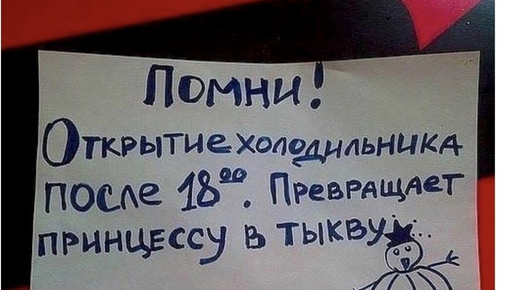 Помни!
Открытие холодильника
после 18⁰⁰. Превращает
принцессу в тыкву...